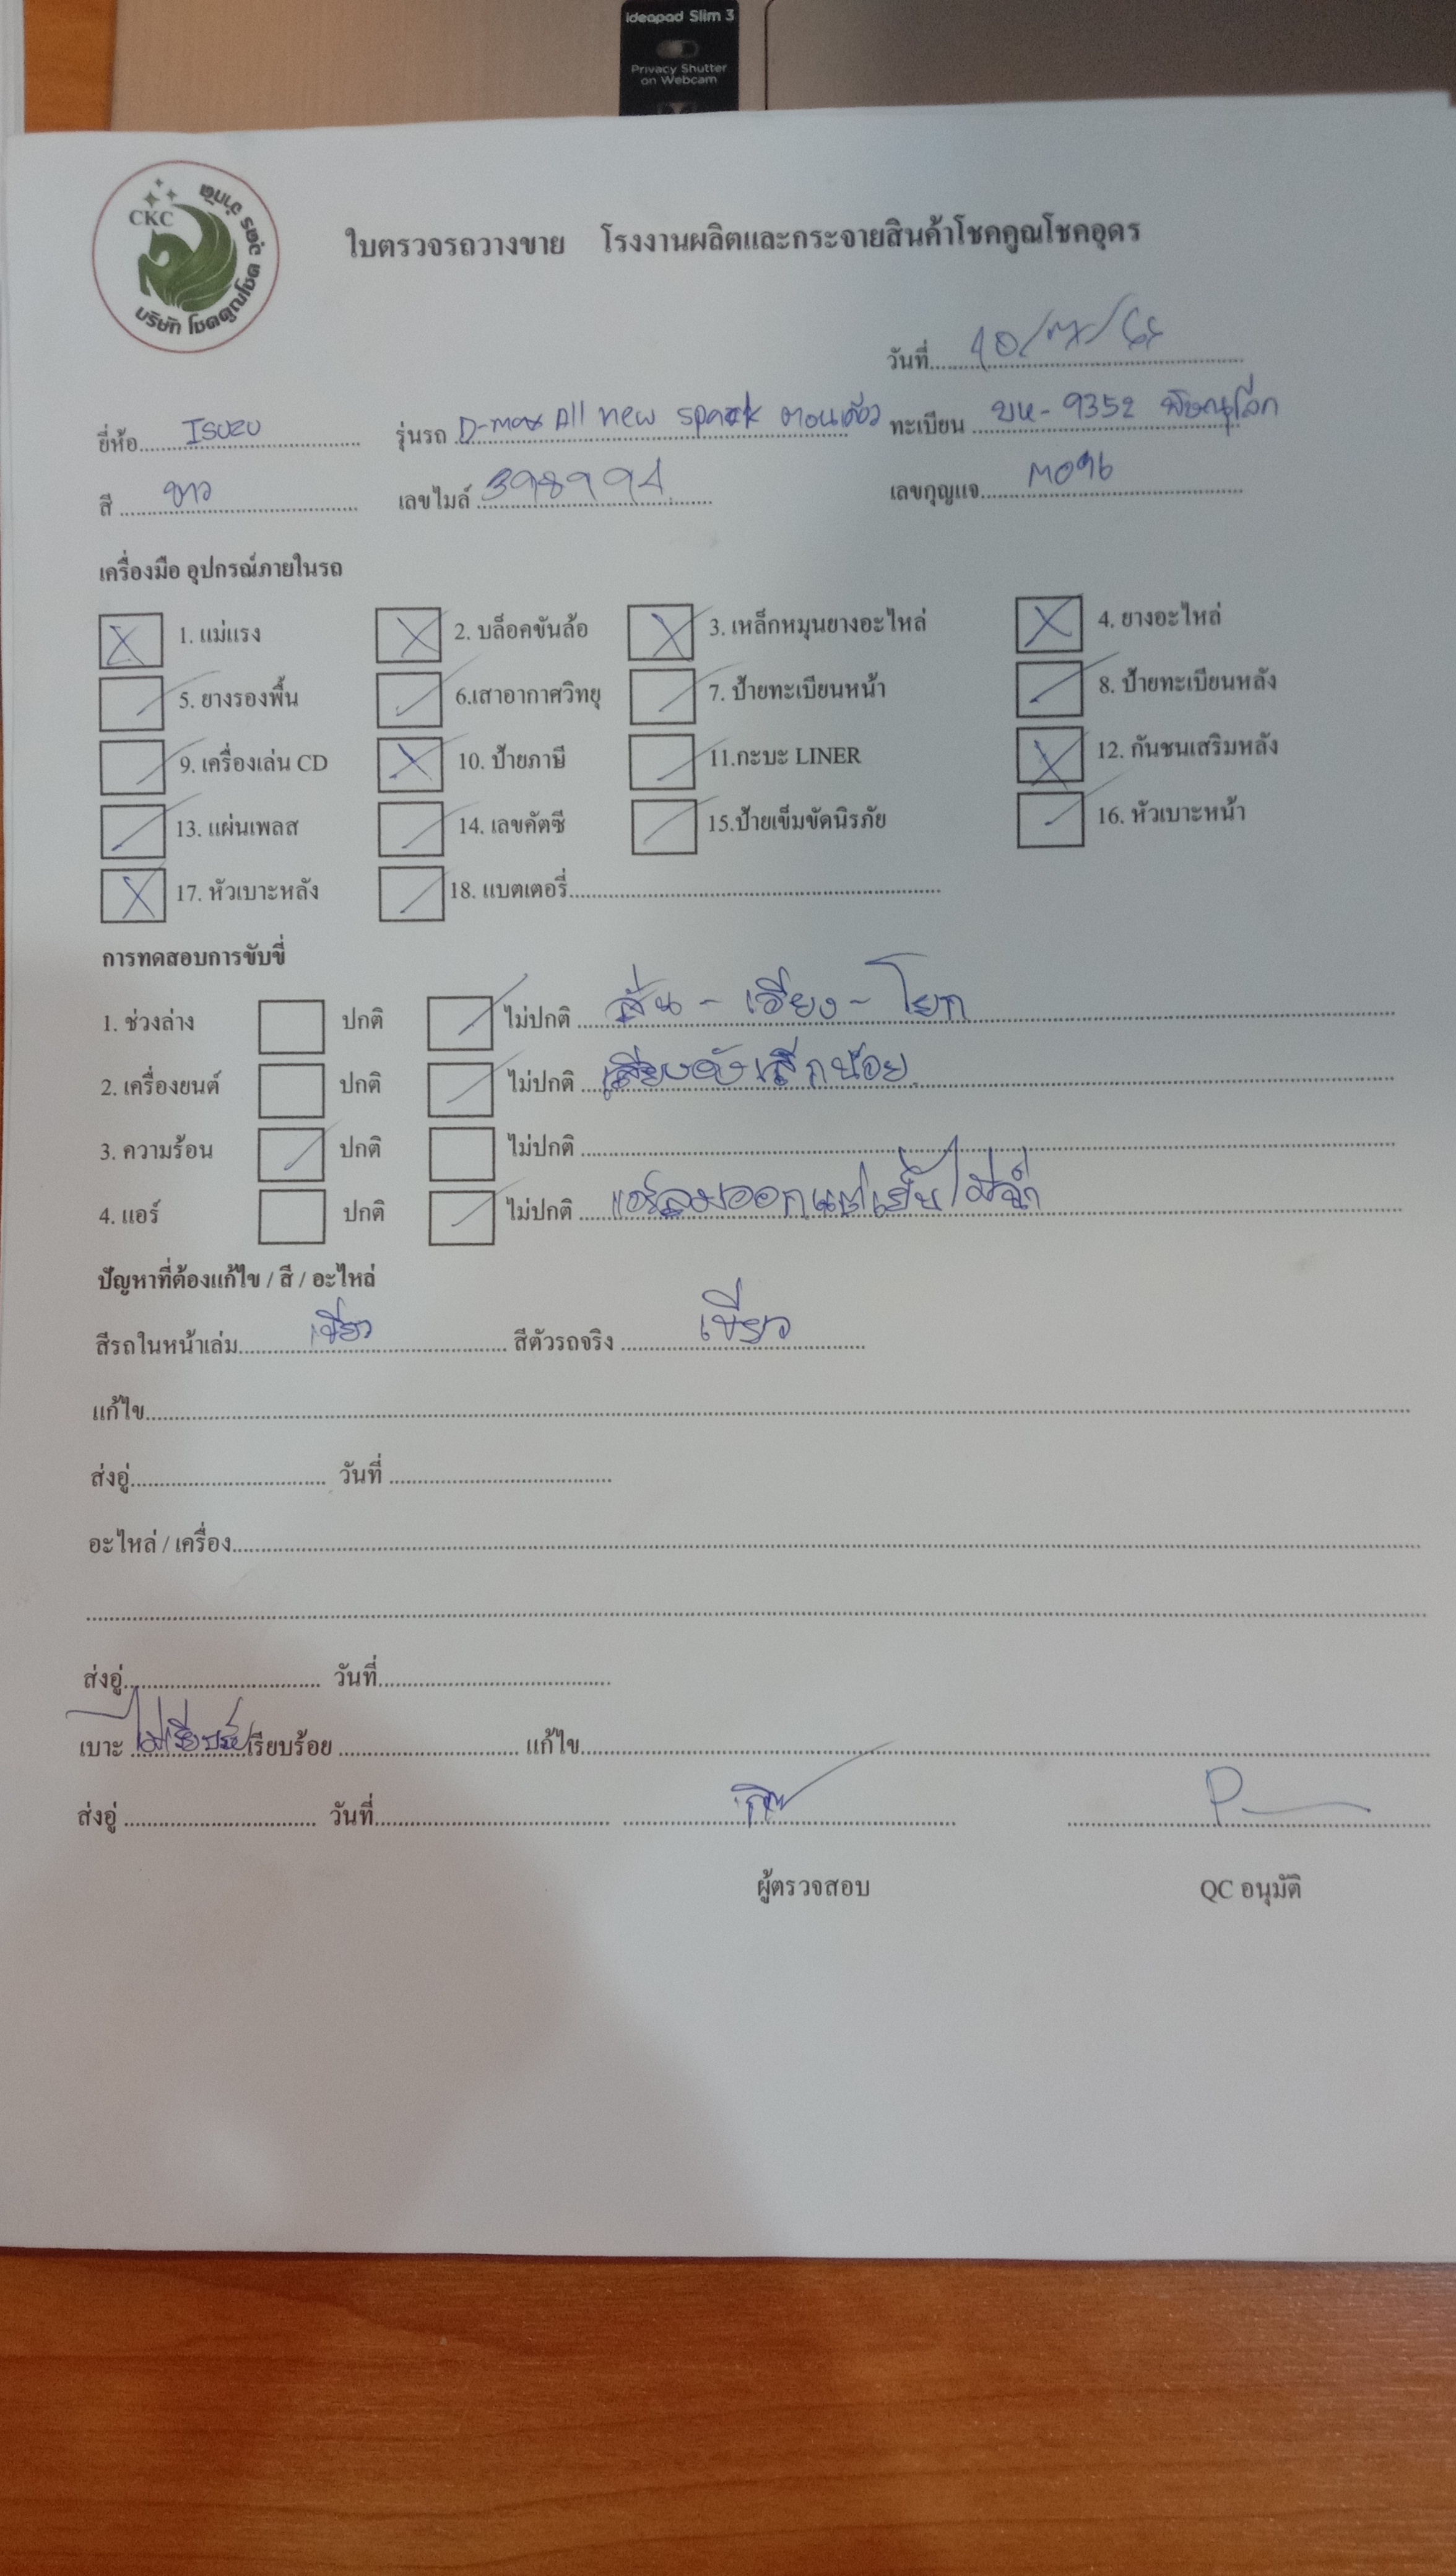 ideapad Slim 3
Privacy Shutter
on Webcam
CKC
บริษัท โชคคูณโชค อุดร จำกัด
ใบตรวจรถวางขาย โรงงานผลิตและกระจายสินค้าโชคคูณโชคอุดร
วันที่
ยี่ห้อ ISUZU รุ่นรถ D-max All new spark ตอนเดียว ทะเบียน บห-9352 พิษณุโลก
สี ขาว เลขไมล์ 398994 เลขกุญแจ M096
เครื่องมือ อุปกรณ์ภายในรถ
1. แม่แรง 2. บล็อคขันล้อ 3. เหล็กหมุนยางอะไหล่ 4. ยางอะไหล่
5. ยางรองพื้น 6.เสาอากาศวิทยุ 7. ป้ายทะเบียนหน้า 8. ป้ายทะเบียนหลัง
9. เครื่องเล่น CD 10. ป้ายภาษี 11.กะบะ LINER 12. กันชนเสริมหลัง
13. แผ่นเพลส 14. เลขคัตซี 15.ป้ายเข็มขัดนิรภัย 16. หัวเบาะหน้า
17. หัวเบาะหลัง 18. แบตเตอรี่
การทดสอบการขับขี่
1. ช่วงล่าง ปกติ ไม่ปกติ สั่น - เอียง - โยก
2. เครื่องยนต์ ปกติ ไม่ปกติ เสียงดังเล็กน้อย
3. ความร้อน ปกติ ไม่ปกติ
4. แอร์ ปกติ ไม่ปกติ แอร์ลมออกแต่เย็นไม่ฉ่ำ
ปัญหาที่ต้องแก้ไข / สี / อะไหล่
สีรถในหน้าเล่ม เขียว สีตัวรถจริง เขียว
แก้ไข
ส่งอู่ วันที่
อะไหล่ / เครื่อง
ส่งอู่ วันที่
เบาะ ไม่เรียบร้อย เรียบร้อย แก้ไข
ส่งอู่ วันที่
ผู้ตรวจสอบ QC อนุมัติ